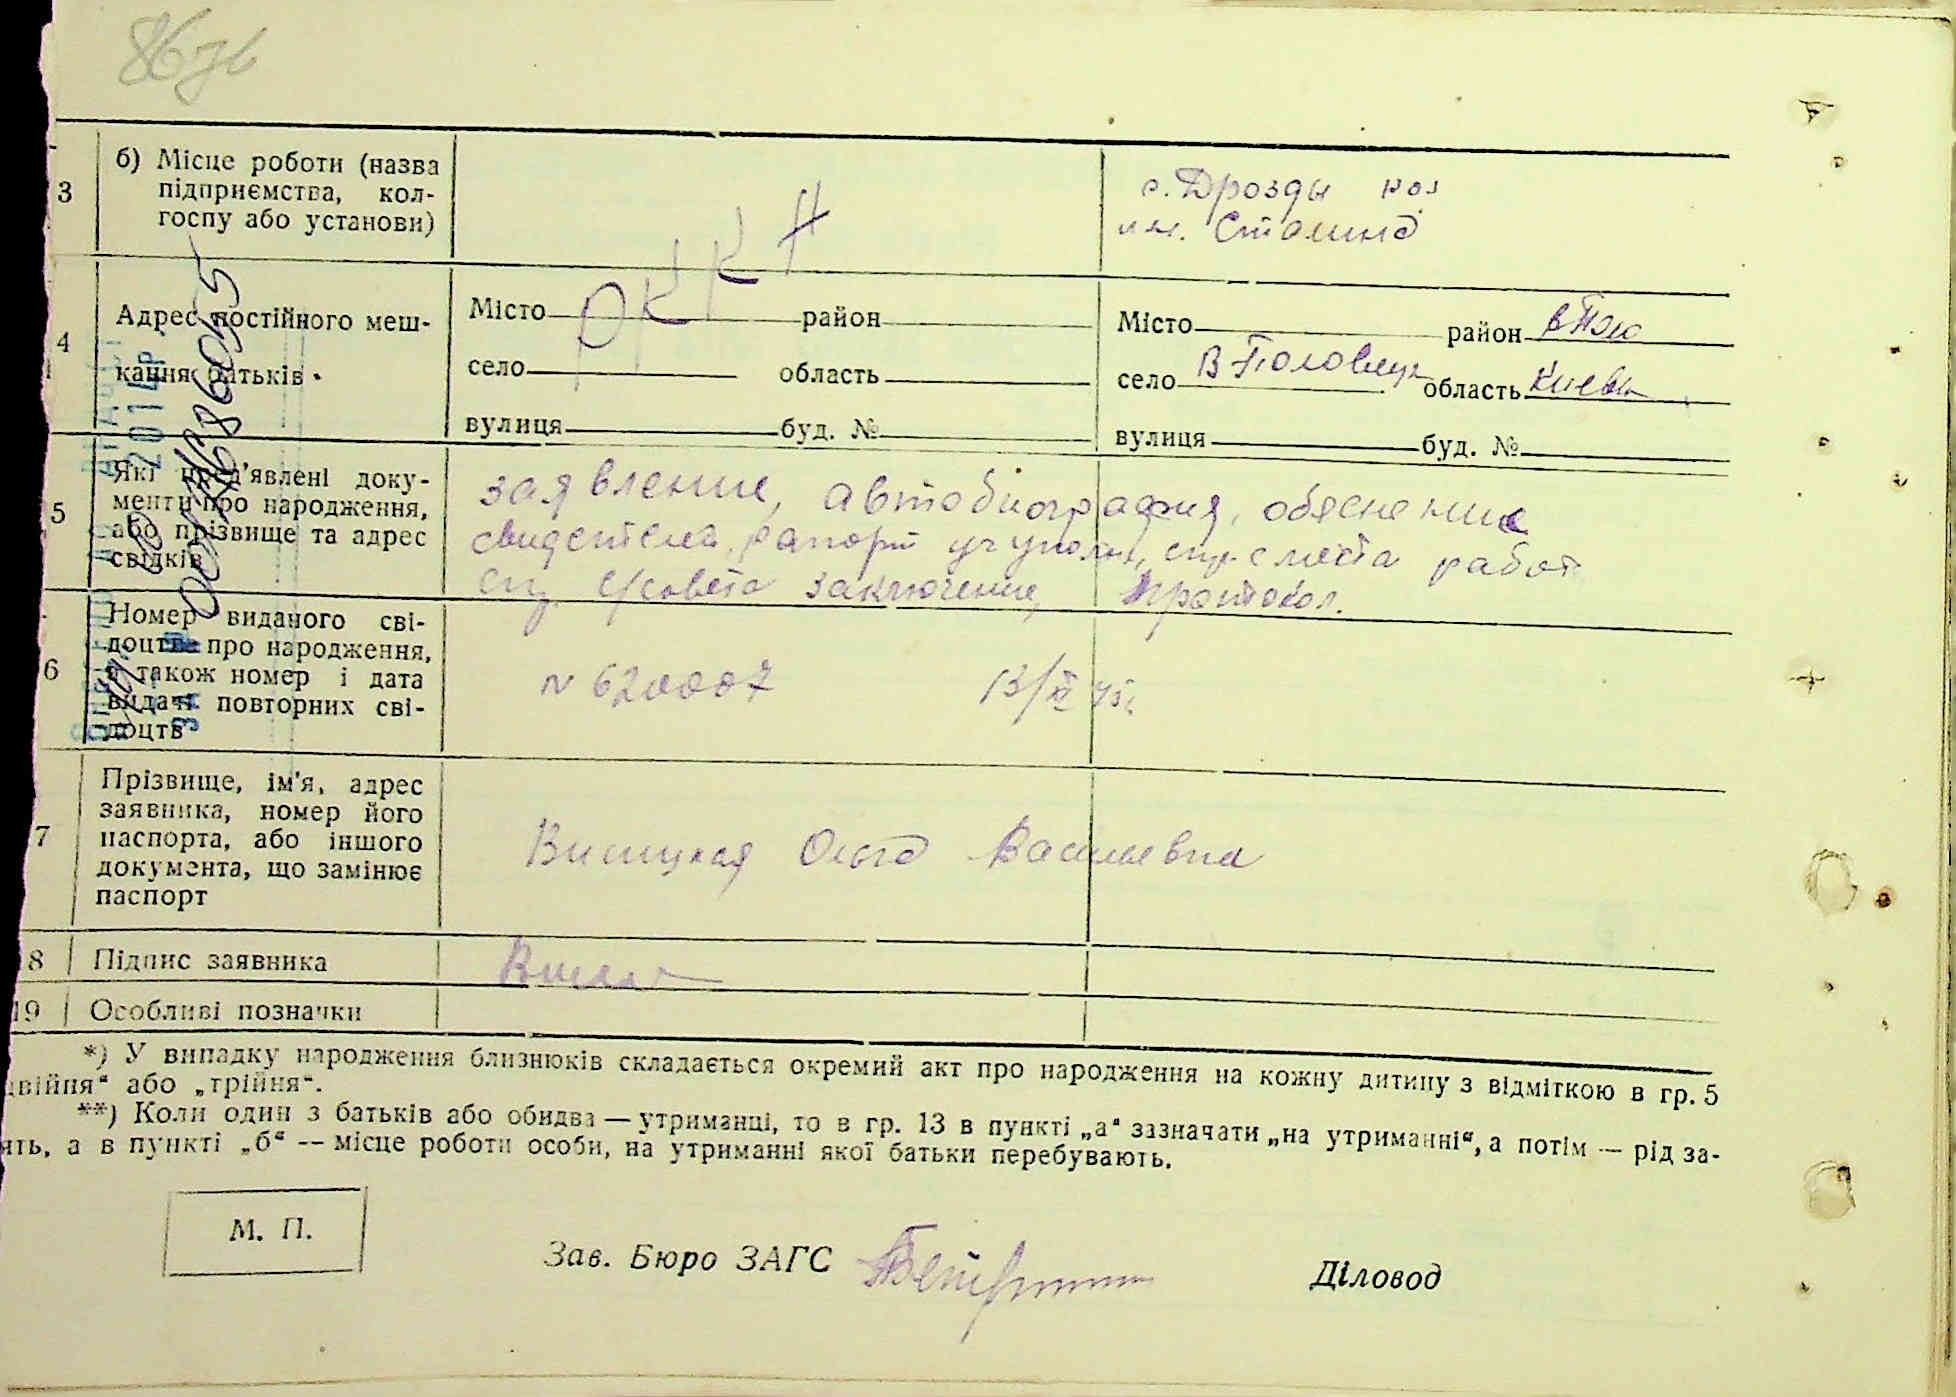 3 б) Місце роботи (назва
підприємства, кол-
госпу або установи)
с. Дрозды кол
им. Сталина
4 Адрес постійного меш-
кання батьків
Місто район
село область
вулиця буд. №
Місто район
село В Половецк область Киевк
вулиця буд. №
5 Які пред'явлені доку-
менти про народження,
або прізвище та адрес
свідків
заявление, автобиография, обяснение
свидетеля, рапорт с места работ
заключение, протокол.
6 Номер виданого сві-
доцтва про народження,
а також номер і дата
видачі повторних сві-
доцтв
N 620007 13/XI 45г.
7 Прізвище, ім'я, адрес
заявника, номер його
паспорта, або іншого
документа, що замінює
паспорт
Висицкая Ольга Васильевна
8 Підпис заявника
19 Особливі позначки
*) У випадку народження близнюків складається окремий акт про народження на кожну дитину з відміткою в гр. 5
двійня“ або „трійня“.
**) Коли один з батьків або обидва — утриманці, то в гр. 13 в пункті „а“ зазначати „на утриманні“, а потім — рід за-
ять, а в пункті „б“ -- місце роботи особи, на утриманні якої батьки перебувають.
М. П.
Зав. Бюро ЗАГС
Діловод